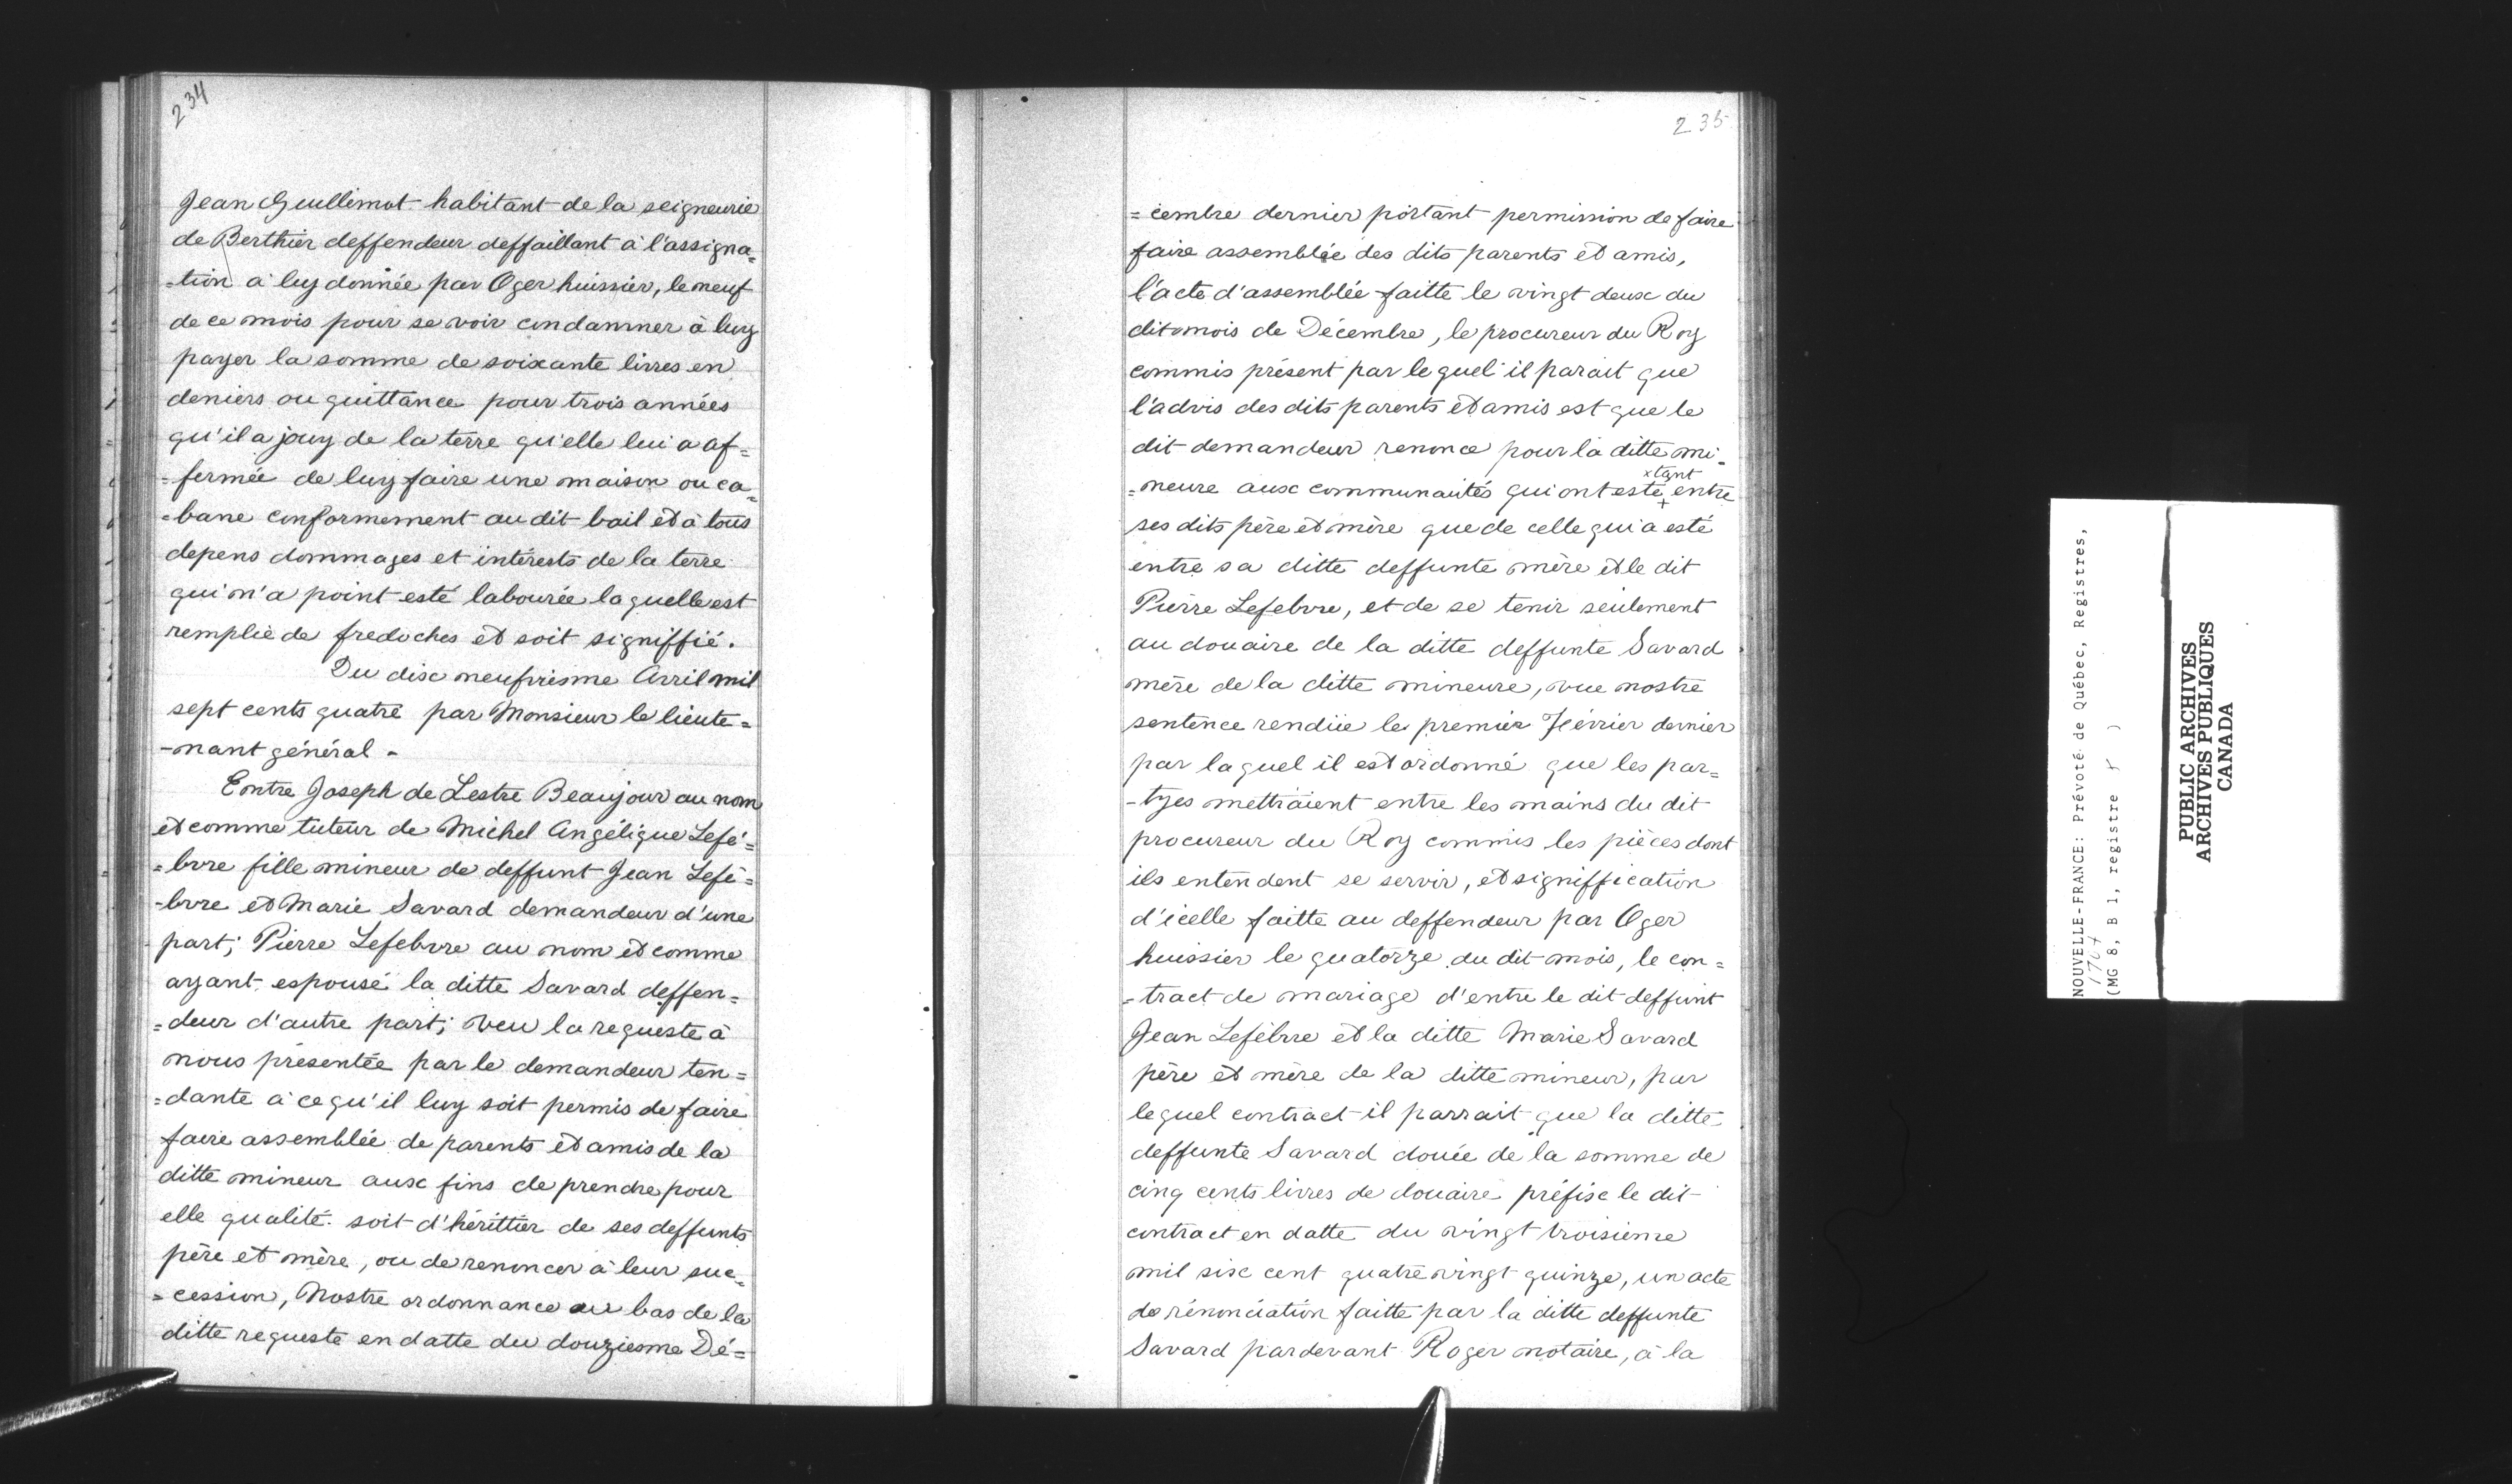 234
Jean Guillimot habitant de la seigneurie
de Berthier deffendeur deffaillant à l'assigna=
=tion à luy donnée par Oger huissier, le neuf
de ce mois pour se voir condamner à luy
payer la somme de soixante livres en
deniers ou quittance pour trois années
qu'il a jouy de la terre qu'elle lui a af=
=fermée de luy faire une maison ou ca=
=bane conformement au dit bail et à tous
depens dommages et intérests de la terre
qui n'a point esté labourée laquelle est
remplie de fredoches et soit signiffié.
Du dix neufviesme Avril mil
sept cents quatre par Monsieur le lieute=
-nant général -
Entre Joseph de Lestre Beaujour au nom
et comme tuteur de Michel Angélique Lefé=
=bvre fille mineur de deffunt Jean Lefé=
-bvre et Marie Savard demandeur d'une
part; Pierre Lefebvre au nom et comme
ayant espousé la ditte Savard deffen=
=deur d'autre part; veu la requeste à
nous présentée par le demandeur ten=
=dante à ce qu'il luy soit permis de faire
faire assemblée de parents et amis de la
ditte mineur aux fins de prendre pour
elle qualité soit d'hérittier de ses deffunts
père et mère, ou de renoncer à leur suc=
=cession, Nostre ordonnance au bas de la
ditte requeste en datte du douziesme Dé=
235
=cembre dernier portant permission de faire
faire assemblée des dits parents et amis,
l'acte d'assemblée faitte le vingt deux du
dit mois de Décembre, le procureur du Roy
commis présent par lequel il parait que
l'advis des dits parents et amis est que le
dit demandeur renonce pour la ditte mi=
×tant
=neure aux communautés qui ont esté + entre
ses dits père et mère que de celle qui a esté
entre sa ditte deffunte mère et le dit
Pierre Lefebvre, et de se tenir seulement
au douaire de la ditte deffunte Savard
mère de la ditte mineure, vue nostre
sentence rendüe le premier Février dernier
par laquel il est ordonné que les par=
-tyes mettraient entre les mains du dit
procureur du Roy commis les pièces dont
ils entendent se servir, et signiffication
d'icelle faitte au deffendeur par Oger
huissier le quatorze du dit mois, le con=
=tract de mariage d'entre le dit deffunt
Jean Lefébvre et la ditte Marie Savard
père et mère de la ditte mineur, par
lequel contract il parrait que la ditte
deffunte Savard douée de la somme de
cinq cents livres de douaire préfix le dit
contract en datte du vingt troisième
mil six cent quatre vingt quinze, un acte
de rénonciation faitte par la ditte deffunte
Savard pardevant Roger notaire, à la
NOUVELLE-FRANCE: Prévoté de Québec, Registres,
1704
(MG 8, B 1, registre )
PUBLIC ARCHIVES
ARCHIVES PUBLIQUES
CANADA